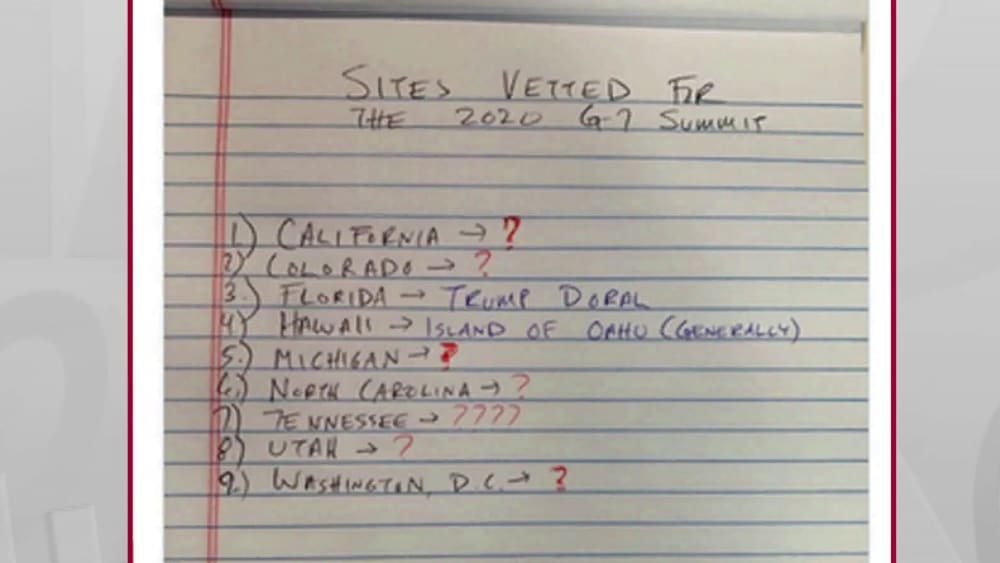 SITES VETTED FOR
THE 2020 G-7 SUMMIT
1.) CALIFORNIA → ?
2) COLORADO → ?
3.) FLORIDA → TRUMP DORAL
4) HAWAII → ISLAND OF OAHU (GENERALLY)
5.) MICHIGAN → ?
6.) NORTH CAROLINA → ?
7) TENNESSEE → ????
8) UTAH → ?
9.) WASHINGTON, D.C. → ?